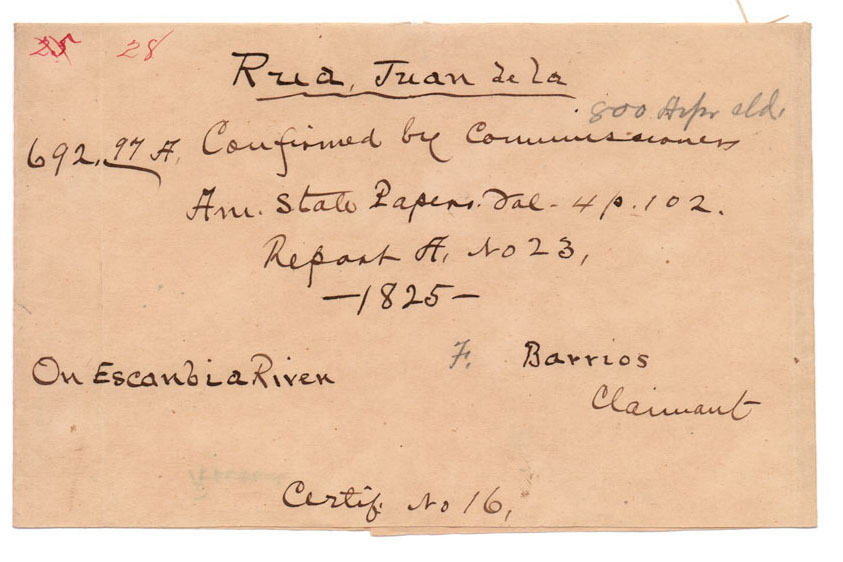 25 28
Rua, Juan de la
800 Arpr old.
692,97 A, Confirmed by Commissioners
Am. State Papers. Vol - 4 p. 102.
Report A, No 23,
-1825-
On Escanbia River F. Barrios
Claimant
Certif. No 16,